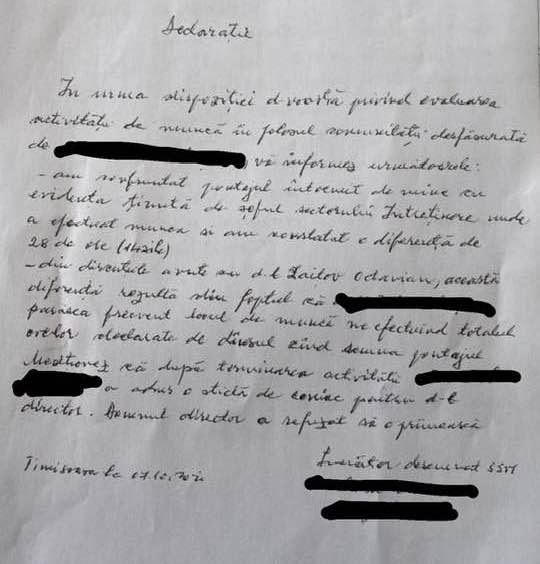 Declarație
In urma dispoziției d-voastă privind evaluarea
activității de muncă în folosul comunității desfășurată
de , vă informez următoarele:
- am confruntat pontajul întocmit de mine cu
evidența ținută de șeful sectorului Intreținere unde
a efectuat munca si am constatat o diferență de
28 de ore (14 zile)
- din discutiile avute cu d-l Zaitov Octavian, această
diferență rezultă din faptul că
părăsea frecvent locul de muncă ne efectuînd totalul
orelor declarate de dînsul cînd semna pontajul
Menționez că după terminarea activității
a adus o sticlă de coniac pentru d-l
director. Domnul director a refuzat să o primească
Timisoara la 07.10.2021
Lucrător desemnat SSM